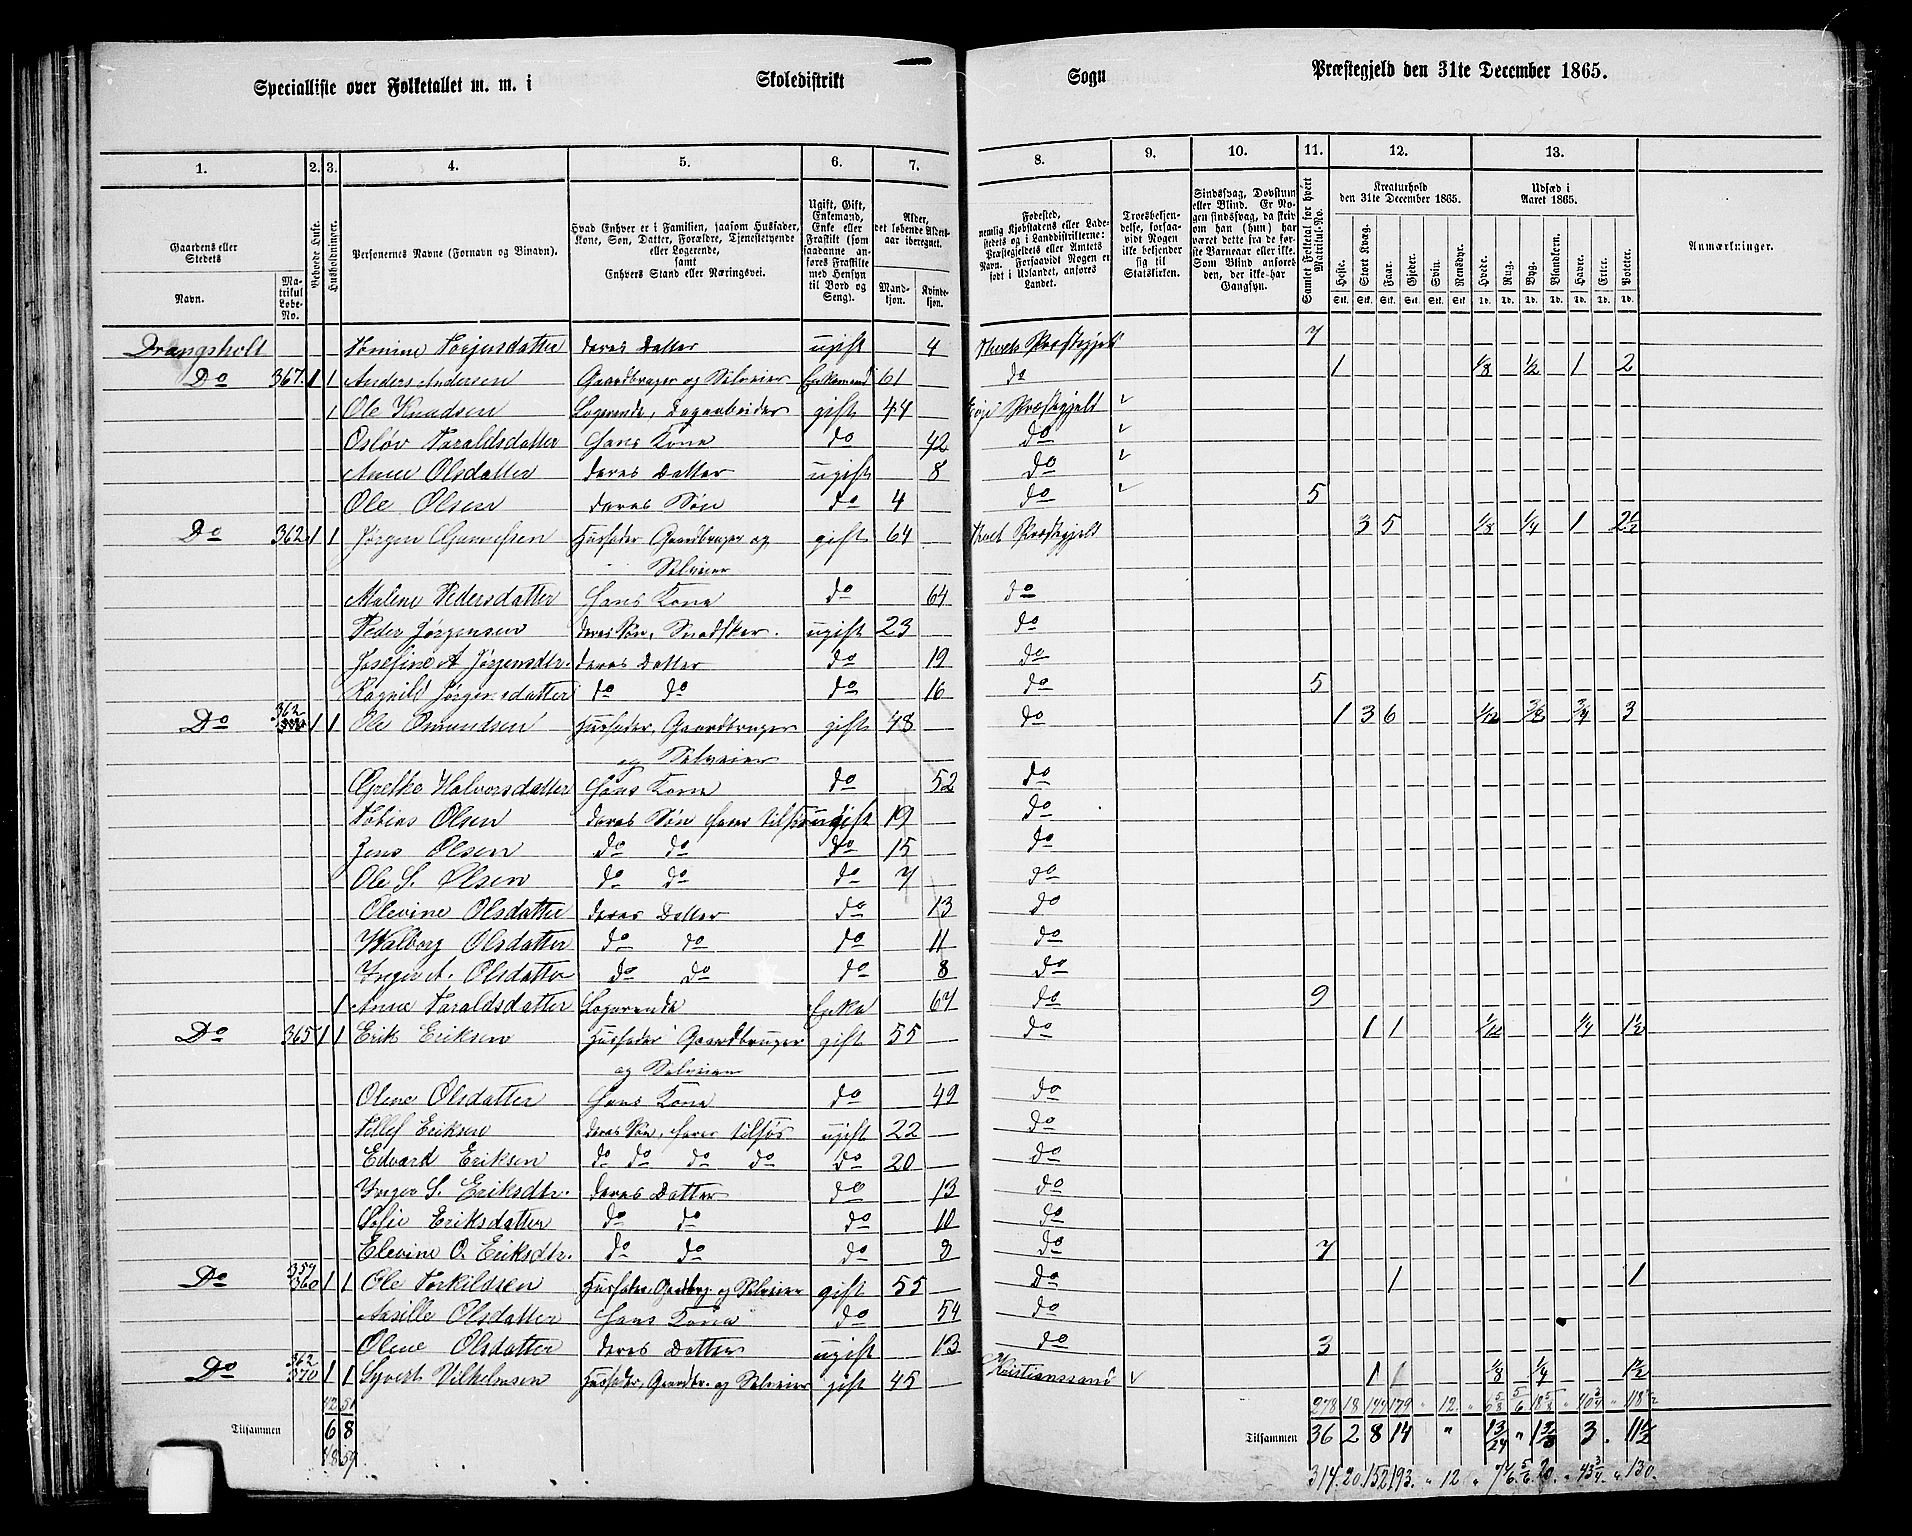 Specialliste over Folketallet m. m. i Skoledistrikt Sogn Præstegjeld den 31te December 1865.
1. 2. 3. 4. 5. 6. 7. 8. 9. 10. 11. 12. 13.
Gaardens eller Stedets Navn. Matrikul Løbe-No. Bebyggede Huse. Husholdninger.
Personernes Navne (Fornavn og Binavn).
Hvad Enhver er i Familien, saasom Husfader, Kone, Søn, Datter, Forældre, Tjenestetyende eller Logerende, samt Enhvers Stand eller Næringsvei.
Ugift, Gift, Enkemand, Enke eller Fraskilt (som saadanne anføres Fraskilte med Hensyn til Bord og Seng).
Alder, det løbende Aldersaar iberegnet. Mandkjøn. Kvindekjøn.
Fødested, nemlig Kjøbstadens eller Ladestedets og i Landdistrikterne: Præstegjeldets eller Amtets Navn. Forsaavidt Nogen er født i Udlandet, anføres Landet.
Troesbekjendelse, forsaavidt Nogen ikke bekjender sig til Statskirken.
Sindssvag, Døvstum eller Blind. Er Nogen sindssvag, da skrives om han (hun) har været dette fra de første Barneaar eller ikke. Som Blind anføres den, der ikke har Gangsyn.
Samlet Folketal for hvert Matrikul-No.
Kreaturhold den 31te December 1865. Heste. Stort Kvæg. Faar. Gjeder. Svin. Rensdyr. Stk. Stk. Stk. Stk. Stk. Stk.
Udsæd i Aaret 1865. Hvede. Rug. Byg. Blandkorn. Havre. Erter. Poteter. Td. Td. Td. Td. Td. Td. Td.
Anmærkninger.
Drangsholt Tomine Torjersdatter deres Datter ugift 4 Præstegjeld 7
Do 367. 1 1 Anders Andersen Gaardbruger og Selveier Enkemand 61 do 1 1/8 1/2 1 2
1 Ole Knudsen Logerende, Dagarbeider gift 44 Præstegjeld
Osløv Taraldsdatter Hans Kone do 42 do
Anne Olsdatter deres Datter ugift 8 do
Ole Olsen deres Søn do 4 do 5
Do 362 1 1 Jørgen Husfader Gaardbruger og gift 64 Præstegjeld 3 5 1/8 1/4 1 2 1/2
Selveier
Malene Pedersdatter Hans Kone do 64 do
Peder Jørgensen deres Søn, Snedker. ugift 23 do
Josefine A Jørgensdtr. deres Datter do 19 do
Ragnild Jørgensdatter do do do 16 do 5
Do 362 1 1 Ole Osmundsen Husfader, Gaardbruger gift 48 do 1 3 6 1/12 3/4 3
og Selveier
Grethe Halvorsdatter Hans Kone do 52 do
Tobias Olsen deres Søn farer tilsøes ugift 19 do
Jens Olsen do do do 15 do
Ole S. Olsen do do do 7 do
Olevine Olsdatter deres Datter do 13 do
Walborg Olsdatter do do do 11 do
Inger A. Olsdatter do do do 8 do
1 Anne Taraldsdatter Logerende Enke 67 do 9
Do 365 1 1 Erik Eriksen Husfader Gaardbruger gift 55 do 1 1 1/12 1/4 1 1/2
og Selveier
Olene Olsdatter Hans Kone do 49 do
Tellef Eriksen deres Søn, farer tilsøs ugift 22 do
Edvard Eriksen do do do do do 20 do
Inger S. Eriksdtr. deres Datter do 13 do
Sofie Eriksdatter do do do 10 do
Elevine O. Eriksdtr. do do do 3 do 7
Do 359 360 1 1 Ole Torkildsen Husfader, Gaardbrg. og Selveier gift 55 do 1 1
Aasille Olsdatter Hans Kone do 54 do
Olene Olsdatter deres Datter ugift 13 do 3
Do 362 370 1 1 Syvert Vilhelmsen Husfader, Gaardbr. og Selveier gift 45 Kristianssand 1 1 1/8 1/4 1 1/2
42 51 278 18 144 179 " 12. " 6 5/8 5/6 18 5/8 " 40 3/4 "
Tilsammen 6 8 Tilsammen 36 2 8 14 " 13/24 " 3 . 11 1/2
48 59. 314. 20. 152. 193. " 12 " 5/6 20. " 43 3/4 " 130.